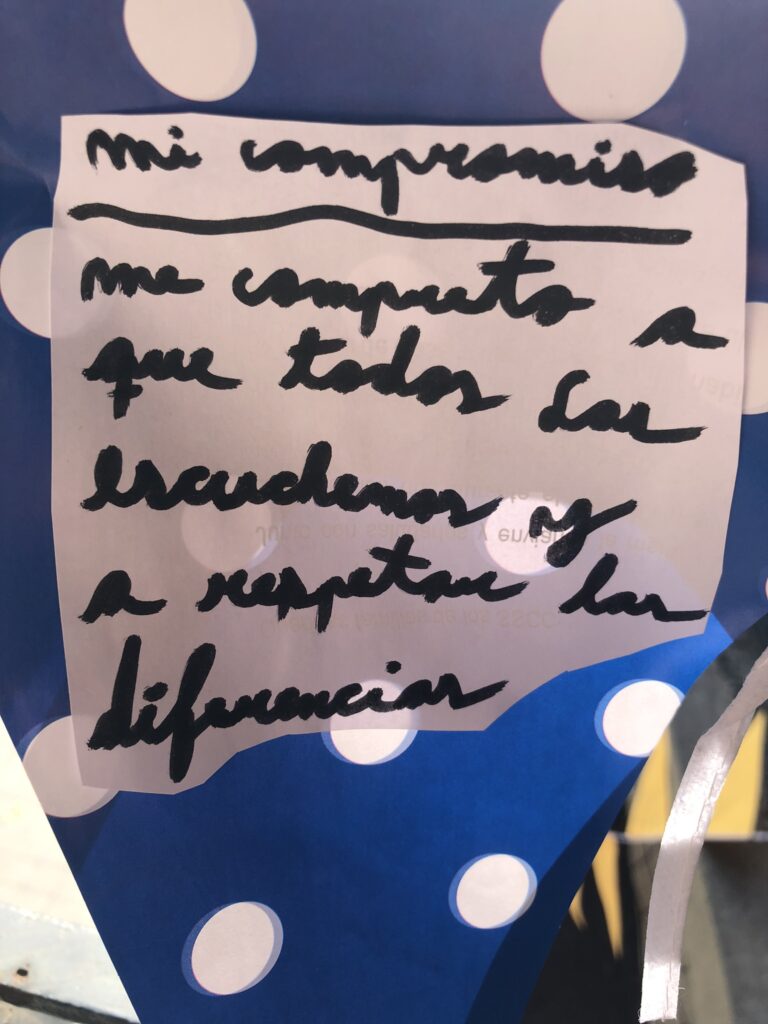 mi compromiso
me compreto a
que todos las
escuchemos y
a respetar las
diferencias